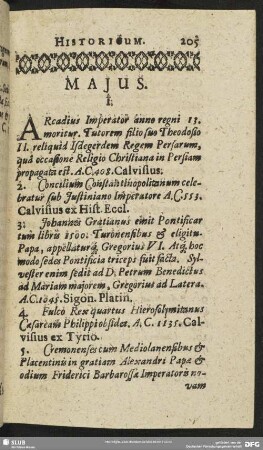 HISTORICUM. 205
MAJUS.
I.
ARcadius Imperator anno regni 13.
moritur. Tutorem filio suo Theodosio
II. reliquid Isdegerdem Regem Persarum,
quâ occasione Religio Christiana in Persiam
propagata est. A.C. 408. Calvisius.
2. Concilium Constantinopolitanum cele-
bratur sub Justiniano Imperatore A.C. 553.
Calvisius ex Hist. Eccl.
3. Johannes Gratianus emit Pontificar
tum libris 1500. Turonensibus & eligitur
Papa, appellaturq; Gregorius VI. Atq; hoc
modo sedes Pontificia triceps fuit facta. Syl-
vester enim sedit ad D. Petrum Benedictus
ad Mariam majorem, Gregorius ad Latera.
A.C. 1045. Sigon. Platin.
4. Fulco Rex quartus Hierosolymitanus
Cæsaream Philippi obsidet. A. C. 1135. Cal-
visius ex Tyrio.
5. Cremonenses cum Mediolanensibus &
Placentinis in gratiam Alexandri Papæ &
odium Friderici Barbarossæ Imperatoris no-
vam
SLUB